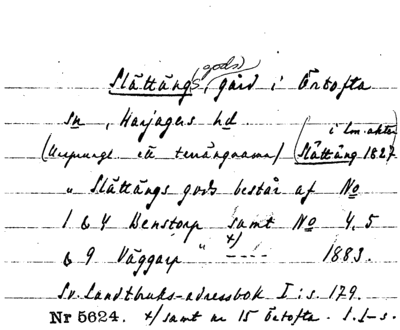 (gods)
Slättäng(s), gård i Örtofta
sn, Harjagers hd
(Ursprungl. ett terrängnamn) (i lm.akter Slättäng 1827)
"Slättängs gods består af No
1 & 4 Wenstorp samt No 4, 5
& 9 Väggarp " x/ ---- 1883.
Sv. Landtbruks-adressbok I: s. 179.
Nr 5624. x/ samt nr 15 Örtofta. I. I-s.